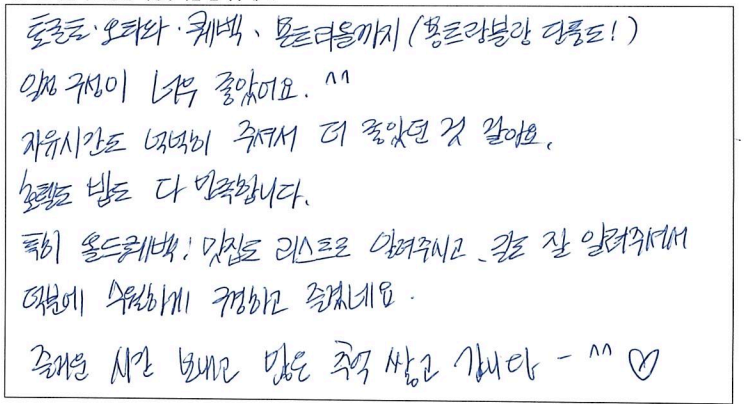 토론토·오타와·퀘벡、몬트리올까지 (몽트랑블랑 단풍도!)
일정 구성이 너무 좋았어요. ^^
자유시간도 넉넉히 주셔서 더 좋았던 것 같아요.
호텔도 밥도 다 만족합니다.
특히 올드퀘벡! 맛집도 리스트로 알려주시고、길도 잘 알려주셔서
덕분에 수월하게 구경하고 즐겼네요.
즐거운 시간 보내고 많은 추억 쌓고 갑니다 - ^^ ♡